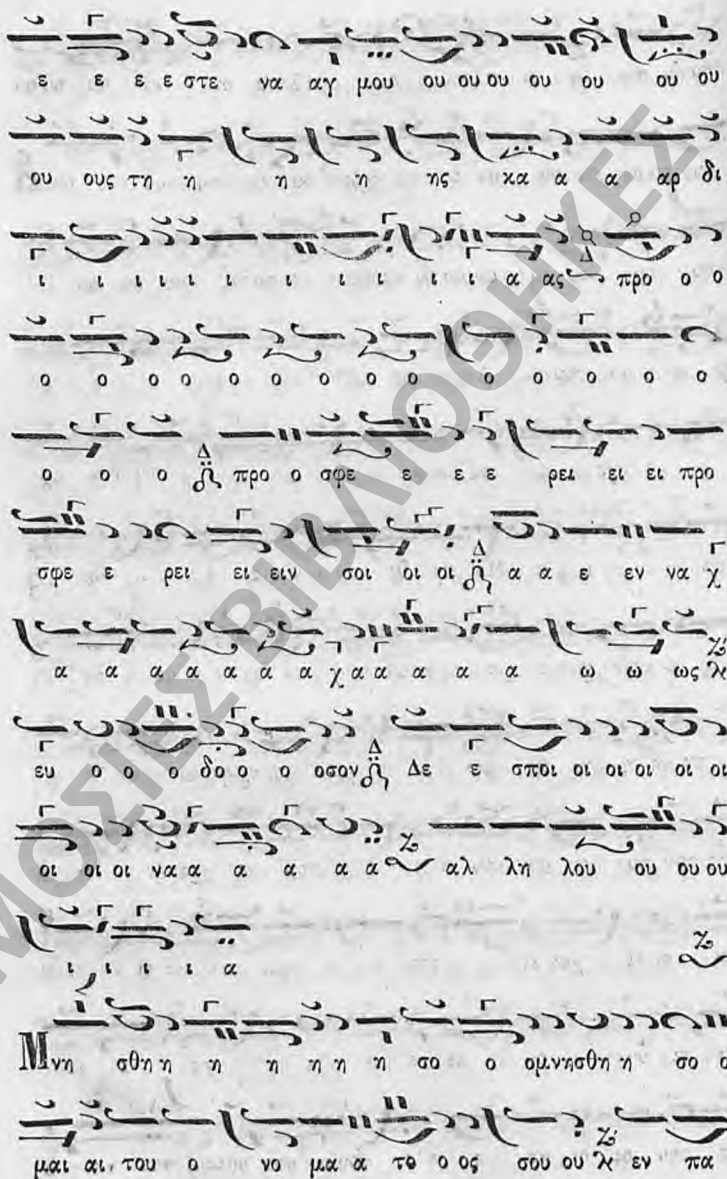 ε ε ε ε στε να αγ μου ου ου ου ου ου ου ου
ου ους τη η η η ης κα α α αρ δι
ι ι ι ι ι ι ι ι ι ι ι α ας Δ προ ο ο
ο ο ο ο ο ο ο ο ο ο ο ο ο ο
ο ο ο Δ προ ο σφε ε ε ε ρει ει ει προ
σφε ε ρει ει ειν σοι οι οι Δ α α ε εν να χ
α α α α α α α χα α α α α ω ω ως
ευ ο ο ο δο ο ο οσον Δ Δε ε σποι οι οι οι οι οι
οι οι οι να α α α α α αλ λη λου ου ου ου
ι ι ι ι α
Μνη σθη η η η η η σο ο ομνησθη η σο ο
μαι αι, του ο νο μα α το ο ος σου ου εν πα
ΜΟΣΙΕΣ ΒΙΒΛΙΟΘΗΚΕΣ